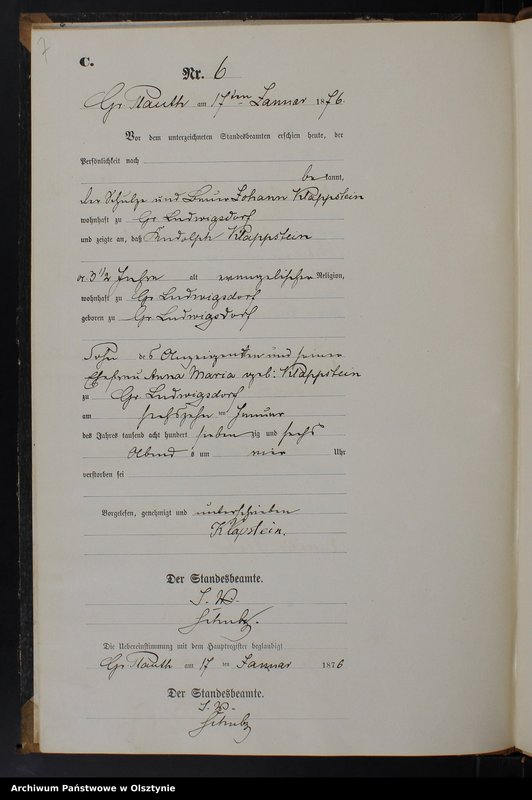 7
C.
Nr. 6
Gr. Rauth am 17ten Januar 1876.
Vor dem unterzeichneten Standesbeamten erschien heute, der
Persönlichkeit nach
be kannt,
der Schulze und Bauer Johann Klappstein
wohnhaft zu Gr. Ludwigsdorf
und zeigte an, daß Rudolph Klappstein
3 1/2 Jahre alt evangelischer Religion,
wohnhaft zu Gr. Ludwigsdorf
geboren zu Gr. Ludwigsdorf
Sohn des Anzeigenden und seiner
Ehefrau Anna Maria geb: Klappstein
zu Gr. Ludwigsdorf
am sechszehn ten Januar
des Jahres tausend acht hundert sieben zig und sechs
Abend s um vier Uhr
verstorben sei
Vorgelesen, genehmigt und unterschrieben
Klapstein.
Der Standesbeamte.
I. V.
Schulz.
Die Uebereinstimmung mit dem Hauptregister beglaubigt
Gr. Rauth am 17 ten Januar 1876
Der Standesbeamte.
I. V.
Schulz
Archiwum Państwowe w Olsztynie